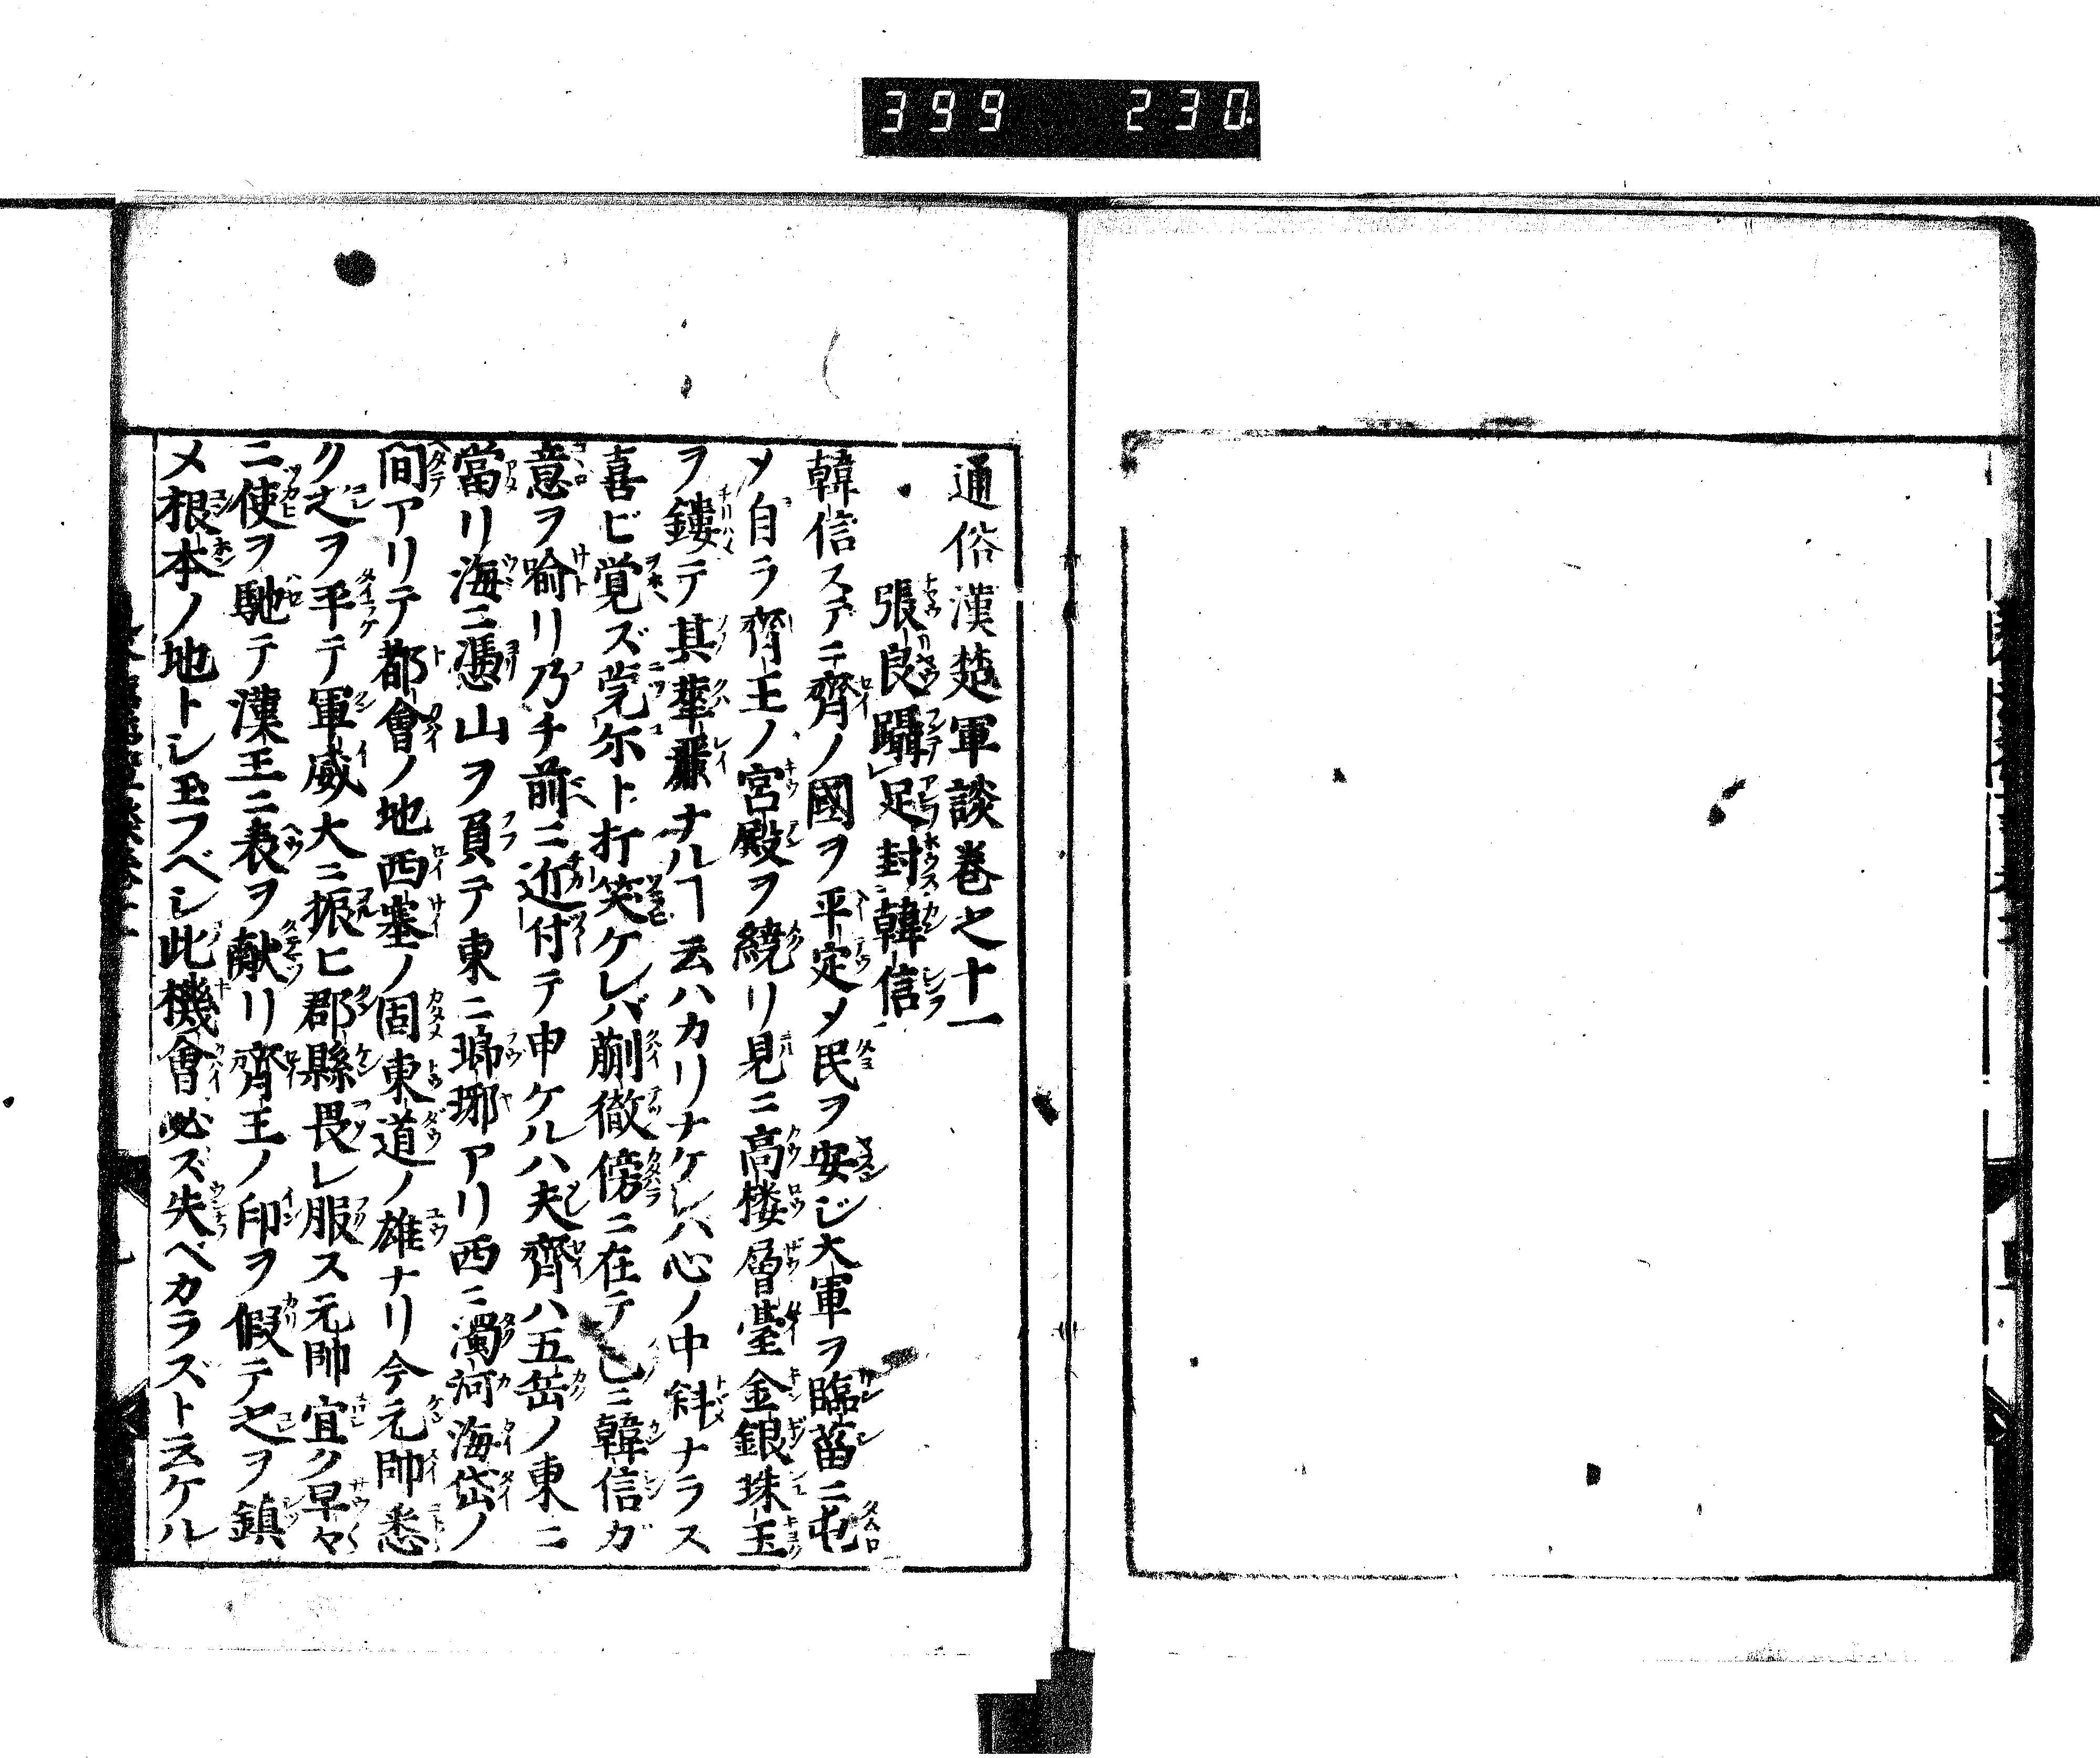 399 230
通俗漢楚軍談巻之十一
張良躡足封韓信
韓信ステニ齊ノ國ヲ平定メ民ヲ安ジ大軍ヲ臨菑ニ屯
メ自ラ齊王ノ宮殿ヲ繞リ見ニ高楼層臺金銀珠玉
ヲ鏤テ其華麗ナルヿ云ハカリナケレハ心ノ中斜ナラス
喜ビ覚ズ莞尓ト打笑ケレバ蒯徹傍ニ在テ已ニ韓信ガ
意ヲ喻リ乃チ前ニ近付テ申ケルハ夫齊ハ五岳ノ東ニ
當リ海ニ憑山ヲ負テ東ニ瑯琊アリ西ニ濁河海岱ノ
間アリテ都會ノ地西塞ノ固東道ノ雄ナリ今元帥悉
ク之ヲ平テ軍威大ニ振ヒ郡縣畏レ服ス元帥宜ク早々
ニ使ヲ馳テ漢王ニ表ヲ献リ齊王ノ印ヲ假テ之ヲ鎮
メ根本ノ地トレ玉フベシ此機會必ズ失ベカラズト云ケル